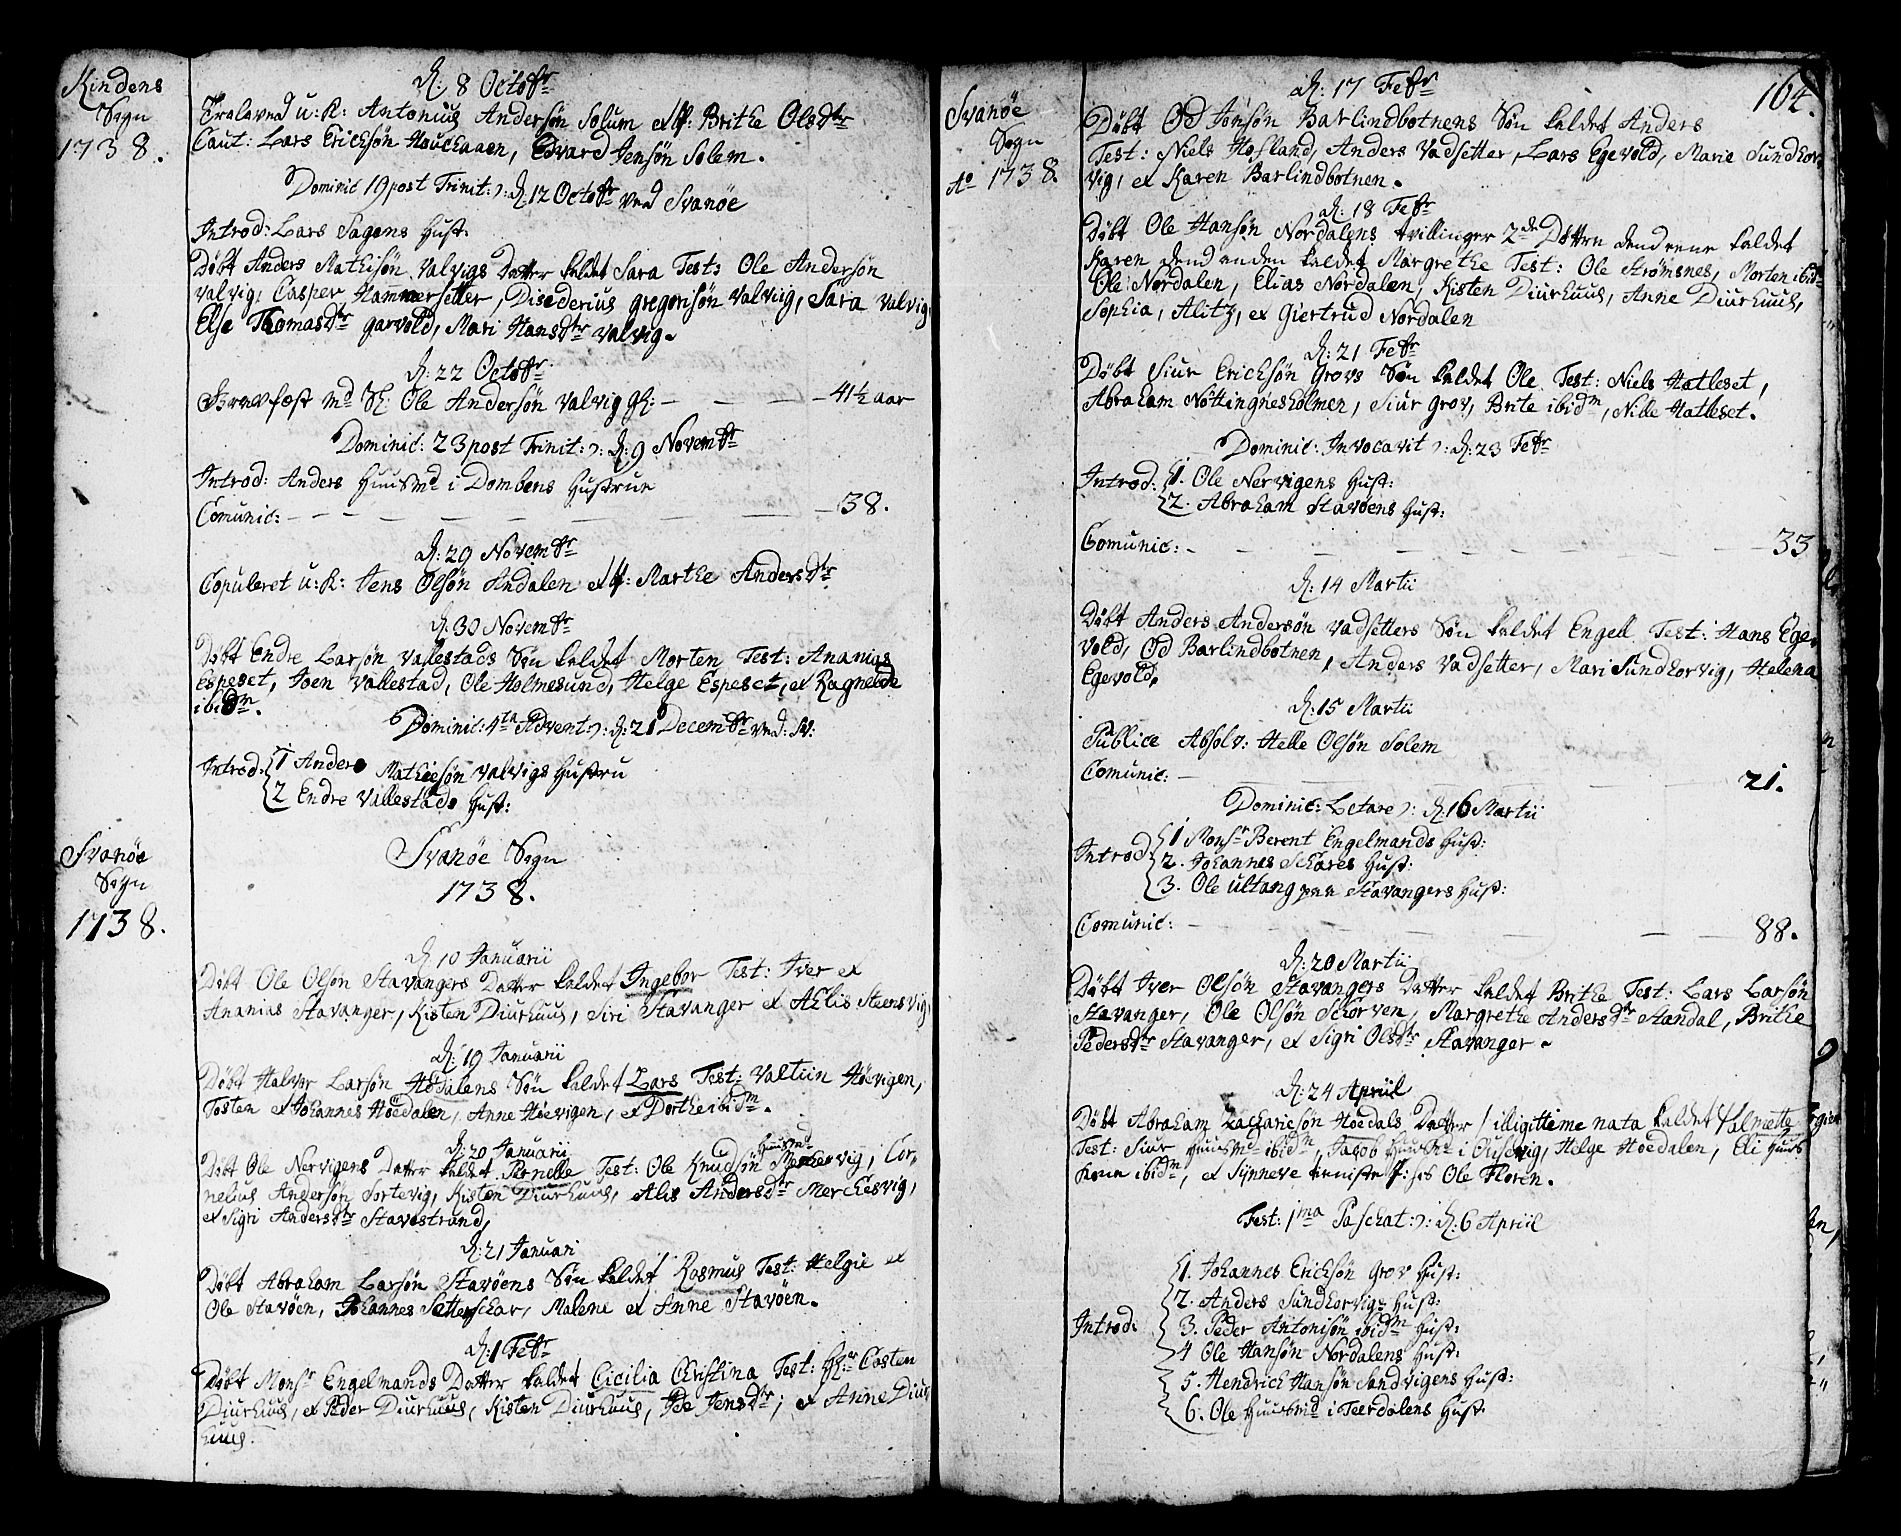 Kindens
Sogn
1738.
d: 8 Octobr
Troloved u: K: Antonius Andersøn Solum et Brithe Olsdtr
Caut: Lars Ericksøn Houckaaen, Edvard Jensøn Solem.
Dominic 19 post Trinit: ɔ: d: 12 Octobr ved Svanøe
Introd: Lars Sagens Hust:
Døbt Anders Mathisøn Valvigs Datter kaldet Sara Test: Ole Andersøn
Valvig, Casper Hammersetter, Disederius gregorisøn Valviig, Sara Valvig,
Else Thomasdtr garvold, Mari Hansdtr Valvig.
d: 22 Octobr
Gravfæst Ole Andersøn Valvig gl: - - - - 41½ aar
Dominic: 23 post Trinit: ɔ: d: 9 Novembr
Introd: Anders Huusmd i Dombens Hustrue
Comunic: - - - - - - - 38.
d: 29 Novembr
Copuleret u: K: Jens Olsøn Indalen et Marthe Andersdtr
d: 30 Novembr
Døbt Endre Larsøn Vallestads Søn kaldet Morten Test: Ananias
Espeset, Joen Vallestad, Ole Holmesund, Helge Espeset, et Ragnelde
ibidm.
Dominic: 4ta Advent ɔ: d: 21 Decembr ved: Sv:
Introd: 1 Anders Mathiesøn Valvigs Hustru
2 Endre Vallestads Hust:
Svanøe
Sogn
1738.
Svanøe Sogn
1738.
d: 10 Januarii
Døbt Ole Olsøn Stavangers Datter kaldet Ingebor Test: Iver et
Ananias Stavanger, Kisten Diurhuus, Siri Stavanger et Aelis Steensvig,
d: 19 Januarii
Døbt Halvor Larsøn Høedalens Søn kaldet Lars Test: Valtiin Høevigen,
Tosten et Johannes Høedalen, Anne Høevigen, et Dorthe ibidm.
d: 20 Januarii
Døbt Ole Nervigens Datter kaldet Pernelle Test: Ole Knudsøn Huusmd Merkesvig, Cor-
nelius Andersøn Sortevig, Kisten Diurhuus, Alis Andersdtr Merchesvig,
et Sigri Andersdtr Stavestrand,
d: 21 Januari
Døbt Abraham Larsøn Stavøens Søn kaldet Rasmus Test: Helgie et
Ole Stavøen, Johannes Setterschar, Malene et Anne Stavøen.
d: 1 Febr
Døbt Monsr Engelmands Datter kaldet Cicilia Christina Test: Hr: Casten
Diurhuus, et Peder Diurhuus, Kisten Diurhuus, Ide Jensdtr; et Anne Diur
huus.
Svanøe
Sogn
Ao 1738.
164.
d: 17 Febr
Døbt Od Jonsøn Barlindbotnens Søn kaldet Anders
Test: Niels Hofland, Anders Vadsetter, Lars Egevold, Marie Sundhor
vig, et Karen Barlindbotnen.
d: 18 Febr
Døbt Ole Hansøn Nordalens tvillinger 2de Døttre dend eene kaldet
Karen dend anden kaldet Margrethe Test: Ole Strømsnes, Morten ibid
Ole Nordalen, Elias Nordalen, Kisten Diurhuus, Anne Diurhuus,
Sophia, Alitz, et Giertrud Nordalen
d: 21 Febr
Døbt Siur Ericksøn Grovs Søn kaldet Ole Test: Niels Hatleset,
Abraham Nøttingnesholmen, Siur Grov, Brite ibidm, Nille Hatleset.
Dominic: Invocavit ɔ: d: 23 Febr
Introd: 1. Ole Nervigens Hust:
2. Abraham Stavøens Hust:
Comunic: - - - - - - - 33
d: 14 Martii
Døbt Anders Andersøn Vadsetters Søn kaldet Engell Test: Hans Ege-
vold, Od Barlindbotnen, Anders Vadsetter, Mari Sundhorvig, Helena
Egevold,
d: 15 Martii
Publice Absolv: Helle Olsøn Solem
Comunic: - 21.
Dominic: Letare ɔ: d: 16 Martii
Introd 1 Monsr Berent Engelmands Hust:
2. Johannes Schares Hust:
3. Ole ultang paa Stavangers Hust:
Comunic: - - - 88.
d: 20 Martii
Døbt Iver Olsøn Stavangers Datter kaldet Brithe Test: Lars Larsøn
Stavanger, Ole Olsøn Schorven, Margrethe Andersdtr Standal, Brithe
Pedersdtr Stavanger, et Sigri Olsdtr Stavanger.
d: 24 Apriil
Døbt Abraham Zachariesøn Høedals Datter / illigitieme nata kaldet
Test: Siur Huusmd ibidm, Jacob Huusmd i Olisevig, Helge Høedalen, Eli Huus
kone ibidm, et Synneve hos Ole Floren.
Fest: 1ma Paschat: ɔ: d: 6 Apriil
Introd: 1. Johannes Ericksøn Grov Hust:
2. Anders Sundhorvigs Hust:
3. Peder Antonisøn ibidm Hust:
4 Ole Hansøn Nordalens Hust:
5. Hendrich Hansøn Sandvigens Hust:
6. Ole Huusmd i Teerdalens Hust: